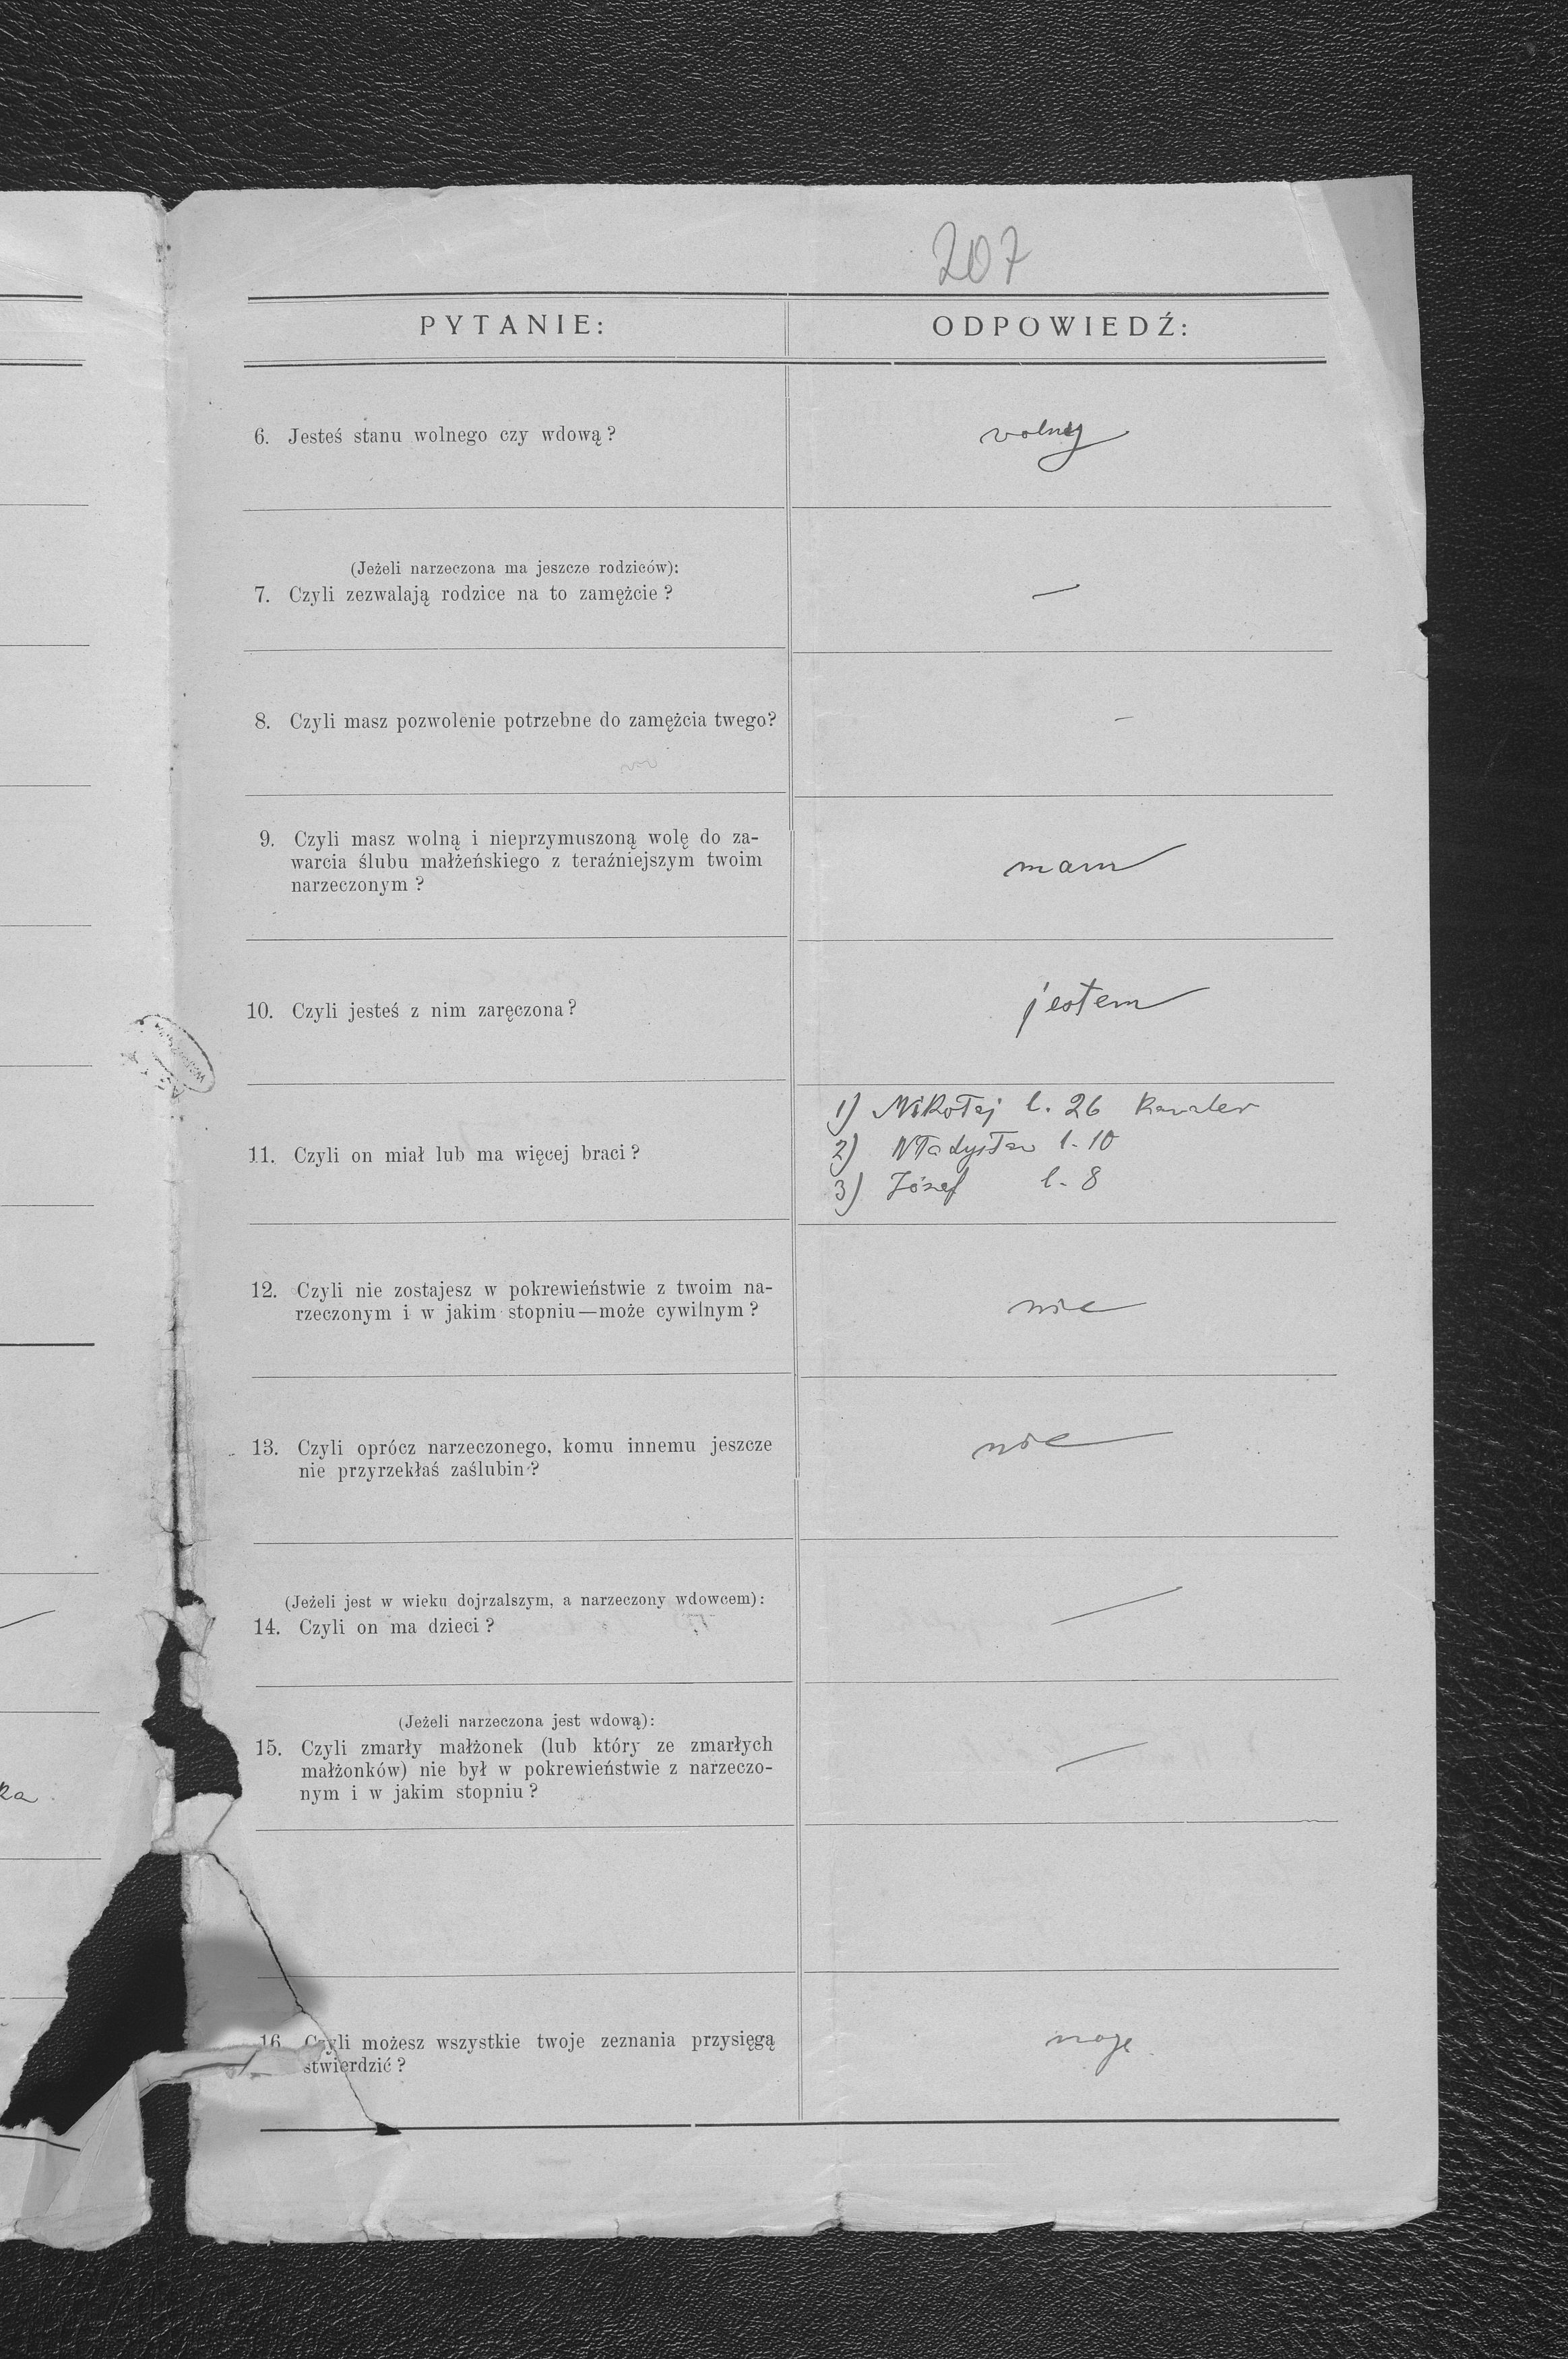 207
PYTANIE: ODPOWIEDŹ:
6. Jesteś stanu wolnego czy wdową? wolny
(Jeżeli narzeczona ma jeszcze rodziców):
7. Czyli zezwalają rodzice na to zamężcie? —
8. Czyli masz pozwolenie potrzebne do zamężcia twego? –
9. Czyli masz wolną i nieprzymuszoną wolę do za-
warcia ślubu małżeńskiego z teraźniejszym twoim
narzeczonym? mam
10. Czyli jesteś z nim zaręczona? jestem
11. Czyli on miał lub ma więcej braci?
1) Mikołaj l. 26 kawaler
2) Władysław l. 10
3) Józef l. 8
12. Czyli nie zostajesz w pokrewieństwie z twoim na-
rzeczonym i w jakim stopniu—może cywilnym? nie
13. Czyli oprócz narzeczonego, komu innemu jeszcze
nie przyrzekłaś zaślubin? nie
(Jeżeli jest w wieku dojrzalszym, a narzeczony wdowcem):
14. Czyli on ma dzieci? —
(Jeżeli narzeczona jest wdową):
15. Czyli zmarły małżonek (lub który ze zmarłych
małżonków) nie był w pokrewieństwie z narzeczo-
nym i w jakim stopniu? —
16. Czyli możesz wszystkie twoje zeznania przysięgą
stwierdzić? mogę